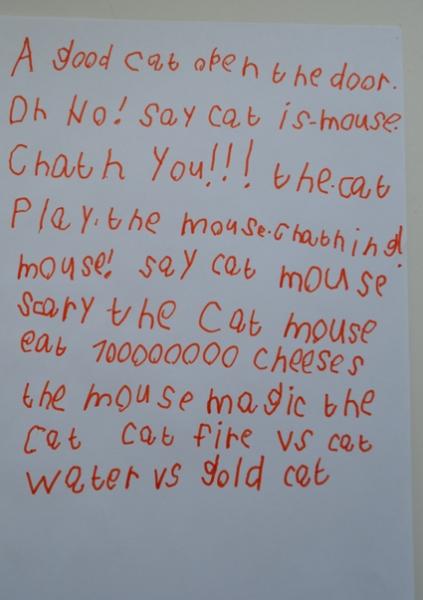 A good cat open the door.
Oh No! say cat is-mouse.
Chath You!!! the.cat
Play.the mouse.Chathing
mouse! say cat mouse
scary the Cat mouse
eat 100000000 cheeses
the mouse magic the
Cat cat fire vs cat
water vs gold cat